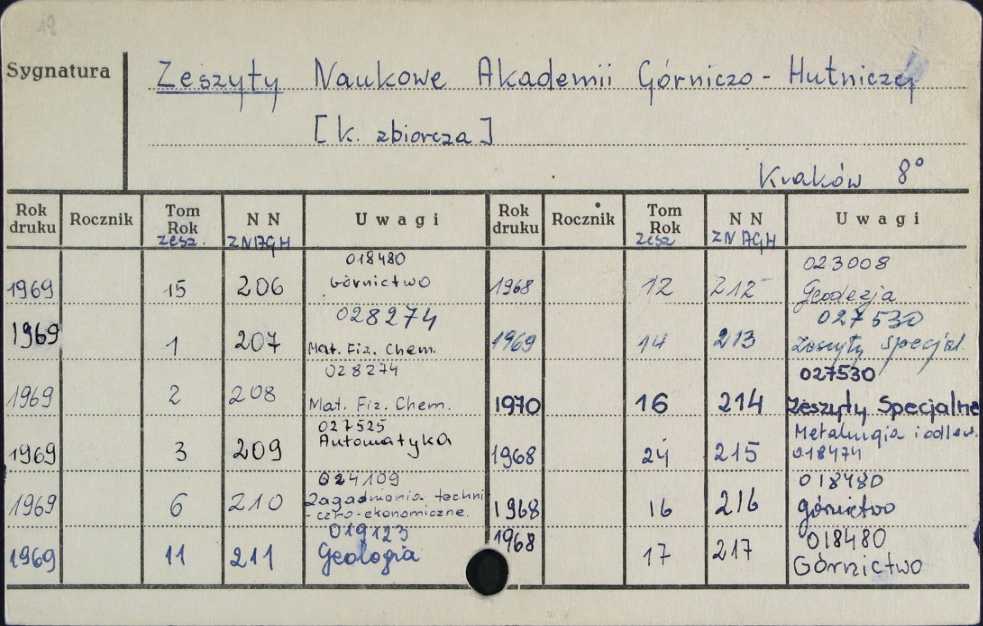 19
Sygnatura
Zeszyty Naukowe Akademii Górniczo - Hutniczej
[k. zbiorcza]
Kraków 8°
Rok druku Rocznik Tom Rok zesz. N N ZNAGH Uwagi
1969 15 206 018480 Górnictwo
1969 1 207 028274 Mat. Fiz. Chem.
1969 2 208 028274 Mat. Fiz. Chem.
1969 3 209 027525 Automatyka
1969 6 210 024109 Zagadnienia techni-czno-ekonomiczne.
1969 11 211 019123 Geologia
Rok druku Rocznik Tom Rok zesz N N ZNAGH Uwagi
1968 12 212 023008 Geodezja
1969 14 213 027530 Zeszyty Specjal.
1970 16 214 027530 Zeszyty Specjalne
1968 24 215 Metalurgia i odlew. 018474
1968 16 216 018480 górnictwo
1968 17 217 018480 Górnictwo